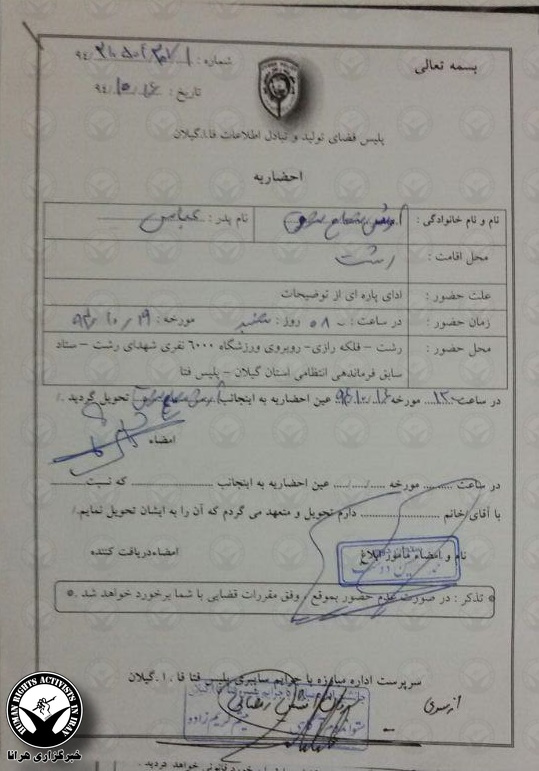 بسمه تعالی
شماره :
تاریخ : ۹۴/۱۰/۱۶
پلیس فضای تولید و تبادل اطلاعات فا.ا.گیلان
احضاریه
نام و نام خانوادگی :
نام پدر : عباس
محل اقامت : رشت
علت حضور : ادای پاره ای از توضیحات
زمان حضور : در ساعت : ۰۸ روز : شنبه مورخه : ۱۹/۱۰/۹۴
محل حضور : رشت – فلکه رازی– روبروی ورزشگاه ۶۰۰۰ نفری شهدای رشت – ستاد
سابق فرماندهی انتظامی استان گیلان – پلیس فتا
در ساعت ۱۳۰۰ مورخه ۹۴/۱۰/۱۶ عین احضاریه به اینجانب تحویل گردید ./
امضاء
در ساعت .......... مورخه ..../..../.... عین احضاریه به اینجانب ...................... که نسبت ........
با آقای/خانم .................... دارم تحویل و متعهد می گردم که آن را به ایشان تحویل نمایم./
نام و امضاء مأمور ابلاغ
امضاءدریافت کننده
* تذکر : در صورت عدم حضور بموقع ، وفق مقررات قضایی با شما برخورد خواهد شد . *
سرپرست اداره مبارزه با جرایم سایبری پلیس فتا فا . ا . گیلان
HUMAN RIGHTS ACTIVISTS IN IRAN
خبرگزاری هرانا